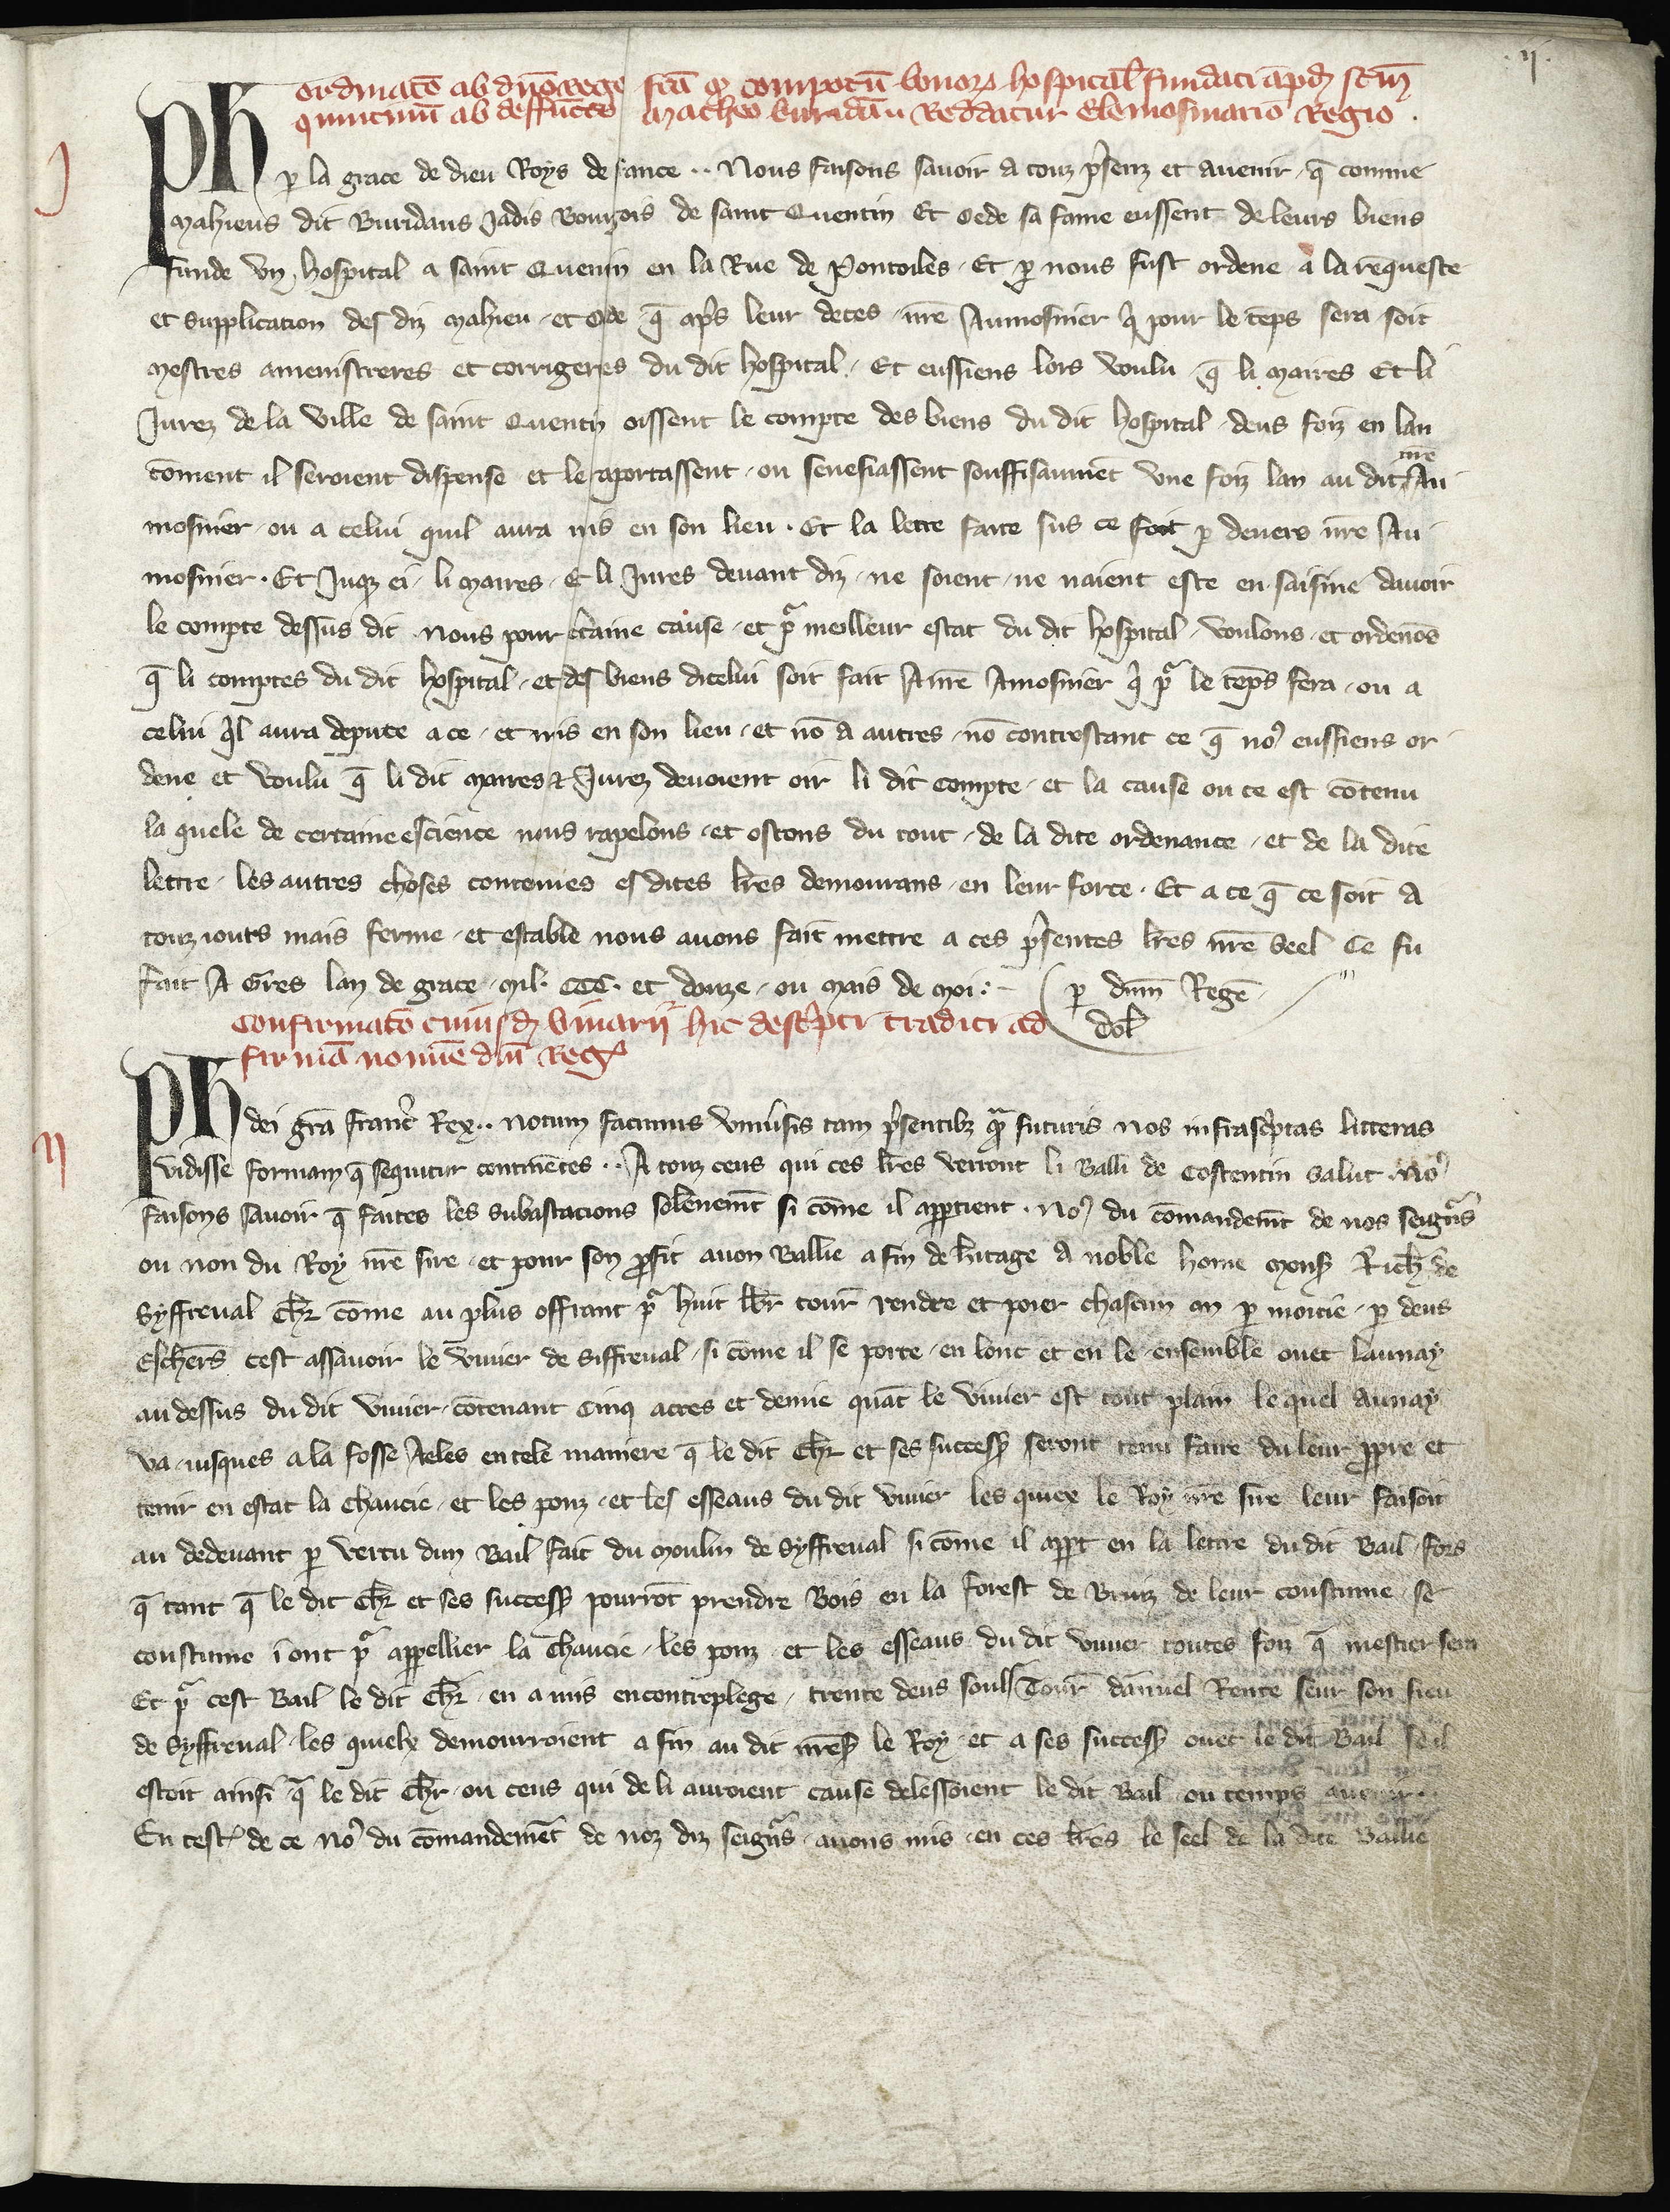 .ij.
Ordinatō ab dn̄o rege fact̄a q̄ compotū bonorꝝ hospital̄ fundati apđ sctm̄
quintinū ab deffuncto Matheo buridāu Reddatur Elemosinario Regio .
j
Ph ꝑ la grace de dieu Roys de france .. Nous faisons savoir a touz p̄senz et avenir q̄ comme
Mahieus dit Buridans Jadis Bourgois de saint Quentin Et Oede sa fame eussent de leurs biens
funde vn hospital a saint Quentin en la Rue de Pontoiles . Et ꝑ nous fust ordene a la requeste
et supplication des diz Mahieu . et Ode q̄ apr̄s leur deces . nr̄e Aumosnier q̄ pour le tēps sera soit
mestres amenistreres et corrigeres du dit hospital . Et eussiens lors voulu q̄ li Maires Et li
Jurez de la ville de saint Quentin oissent le compte des biens du dit hospital deus foiz en lan
cōment il seroient dispense et le aportassent . ou senefiassent souffisaument vne foiz lan au dit nr̄e Au
mosnier . ou a celui quil aura mis en son lieu . Et la lettre faite sus ce soit ꝑ devers nr̄e Au
mosnier . Et Juqz ci . li Maires . Et li Jures devant diz . ne soient . ne naient este en saisine davoir
le compte dessus dit . Nous pour c̄taine cause . et pͬ meilleur estat du dit hospital . voulons . et ordenōs
q̄ li comptes du dit hospital . et des biens dicelui soit fait A nr̄e Amosnier q̄ pͬ le tēps sera . ou a
celui q̄l aura depute a ce . et mis en son lieu . et nō a autres . nō contrestant ce q̄ noꝰ eussiens or
dene et voulu q̄ li dit Maires & Jurez devoient oir li dit compte . et la cause ou ce est cōtenu
la quele de certaine escience nous rapelons . et ostons du tout . de la dite ordenance . et de la dite
lettre . les autres choses contenues es dites lr̄es demourans . en leur force . Et a ce q̄ ce soit a
touz iours mais ferme . et estable nous avons fait mettre a ces p̄sentes lr̄es nr̄e seel Ce fu
fait A Gres lan de grace . Mil. CCC. et douze . ou Mais de Moi :- ꝑ dn̄m Regē
Dol̄
Confirmatō cuiusđ vivarij hic descr̄pti traditi ad
firmā nomīe dn̄i Reg̃
ij
Ph dei grā franc̄ Rex .. Notum facimus vniv̄sis tam p̄sentibz q̄m futuris nos infrasc̄ptas litteras
vidisse formam q̄ sequitur continētes .. A touz ceus qui ces lr̄es verront li Balli de Costentin salut . Noꝰ
faisons savoir q̄ faites les subastacions solēnemēt si cōme il apꝑtient . Noꝰ du cōmandemēt de nos seigñrs
ou non du Roy nr̄e sire . et pour son ꝓfit avon Ballie a fin de h̄itage a noble home Mons̃ Rich̄ de
Syffreval Ch̄r cōme au plus offrant pͬ huit lb̄r tour̄ rendre et poier chascun an ꝑ moitie . ꝑ deus
Eschēr̄s cest assavoir le vivier de Siffreval . si cōme il se porte . en lonc et en le . ensemble ovec launay
au dessus du dit vivier . cōtenant Cinq acres et demie quāt le vivier est tout plain le quel Aunay
va . iusques a la fosse Aeles en tele maniere q̄ le dit Ch̄r et ses success̃ seront tenu faire du leur ꝓpre et
tenir en estat la chaucie . et les ponz . et les esseaus du dit vivier les quiex le Roy nr̄e sire leur faisoit
au dedevant ꝑ vertu dun Bail fait du Moulin de Syffreval si cōme il apꝑt en la lettre du dit Bail . fors
q̄ tant q̄ le dit Ch̄r et ses success̃ pourrōt prendre Bois en la forest de Bruiz de leur coustume . se
coustume i ont pͬ apꝑellier la chaucie . les ponz . et les esseaus du dit vivier toutes foiz q̄ mestier sera
Et pͬ cest Bail le dit Ch̄r . en a mis en contreplege . trente deus soulz Tour̄ dānuel Rente seur son fieu
de Syffreval . les quielx demourroient a fin au dit nr̄e s̃ le Roy . et a ses success̃ ovec le dit Bail se il
estoit ainsi q̄ le dit Ch̄r . ou ceus qui de li auroient cause delessoient le dit Bail ou temps avenir ..
En test̃ de ce noꝰ du cōmandemēt de noz diz seigñrs . avons mis . en ces lr̄es le seel de la dite Ballie